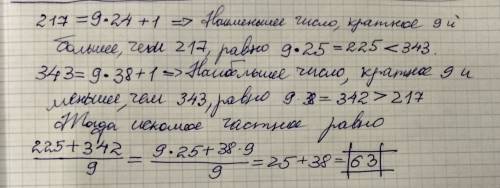 217 = 9·24 + 1 => Наименьшее число, кратное 9 и
большее, чем 217, равно 9·25 = 225 < 343.
343 = 9·38 + 1 => Наибольшее число, кратное 9 и
меньшее, чем 343, равно 9·38 = 342 > 217
Тогда искомое частное равно
(225 + 342)/9 = (9·25 + 38·9)/9 = 25 + 38 = 63